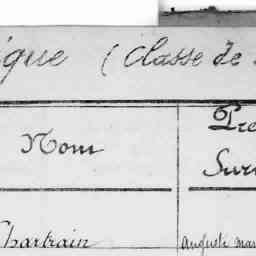 igue (Classe de
Nom
Pre
Surn
Chartrain
Auguste mar